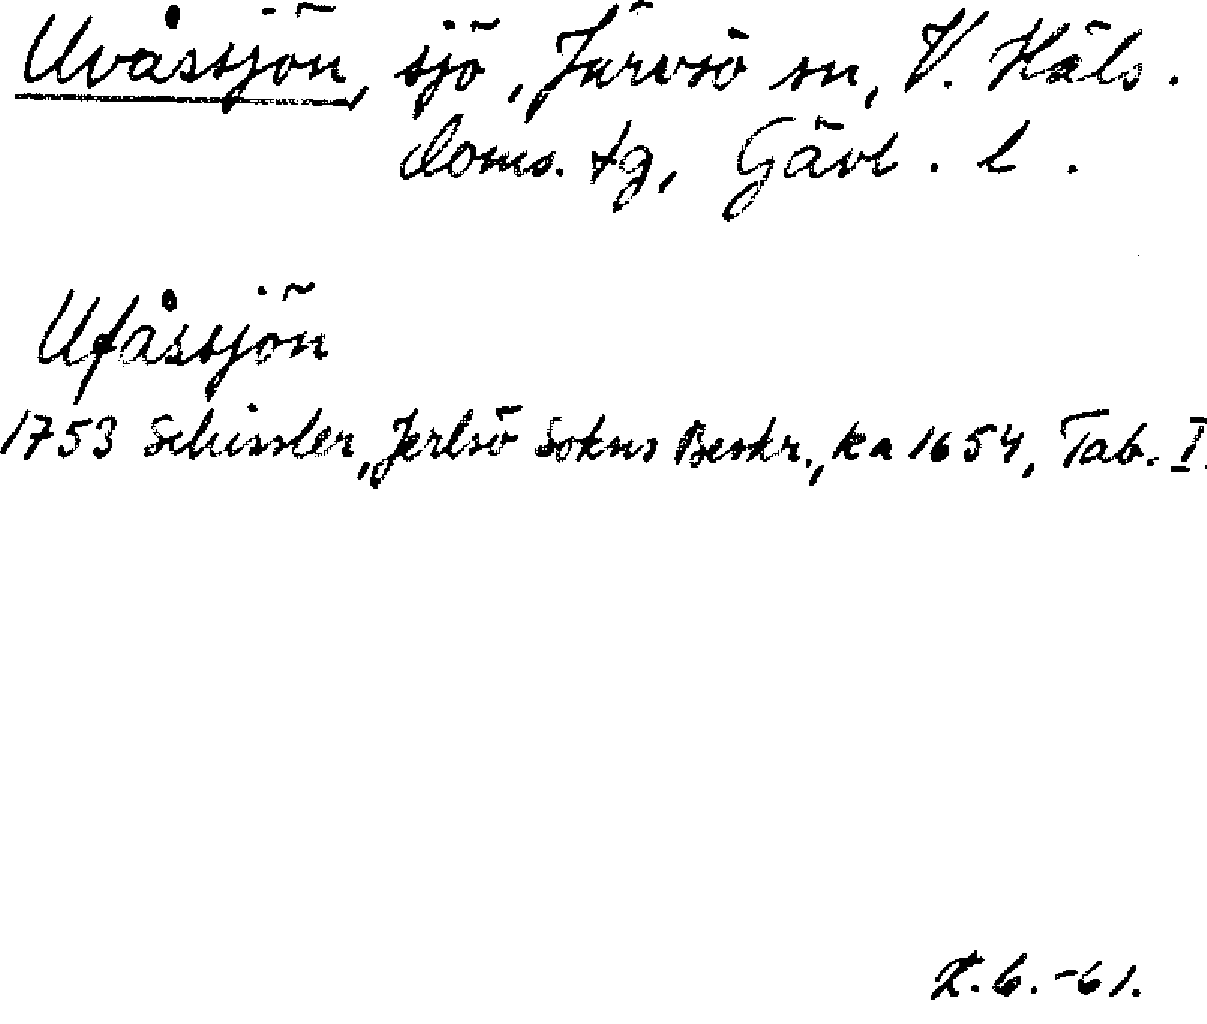 Uvåssjön, sjö, Järvsö sn, V. Häls.
doms. tg, Gävl. l.
Ufåssjön
1753 Schissler, Jerlsö Sokns Beskr., ka 1654, Tab. I.
.6.-61.